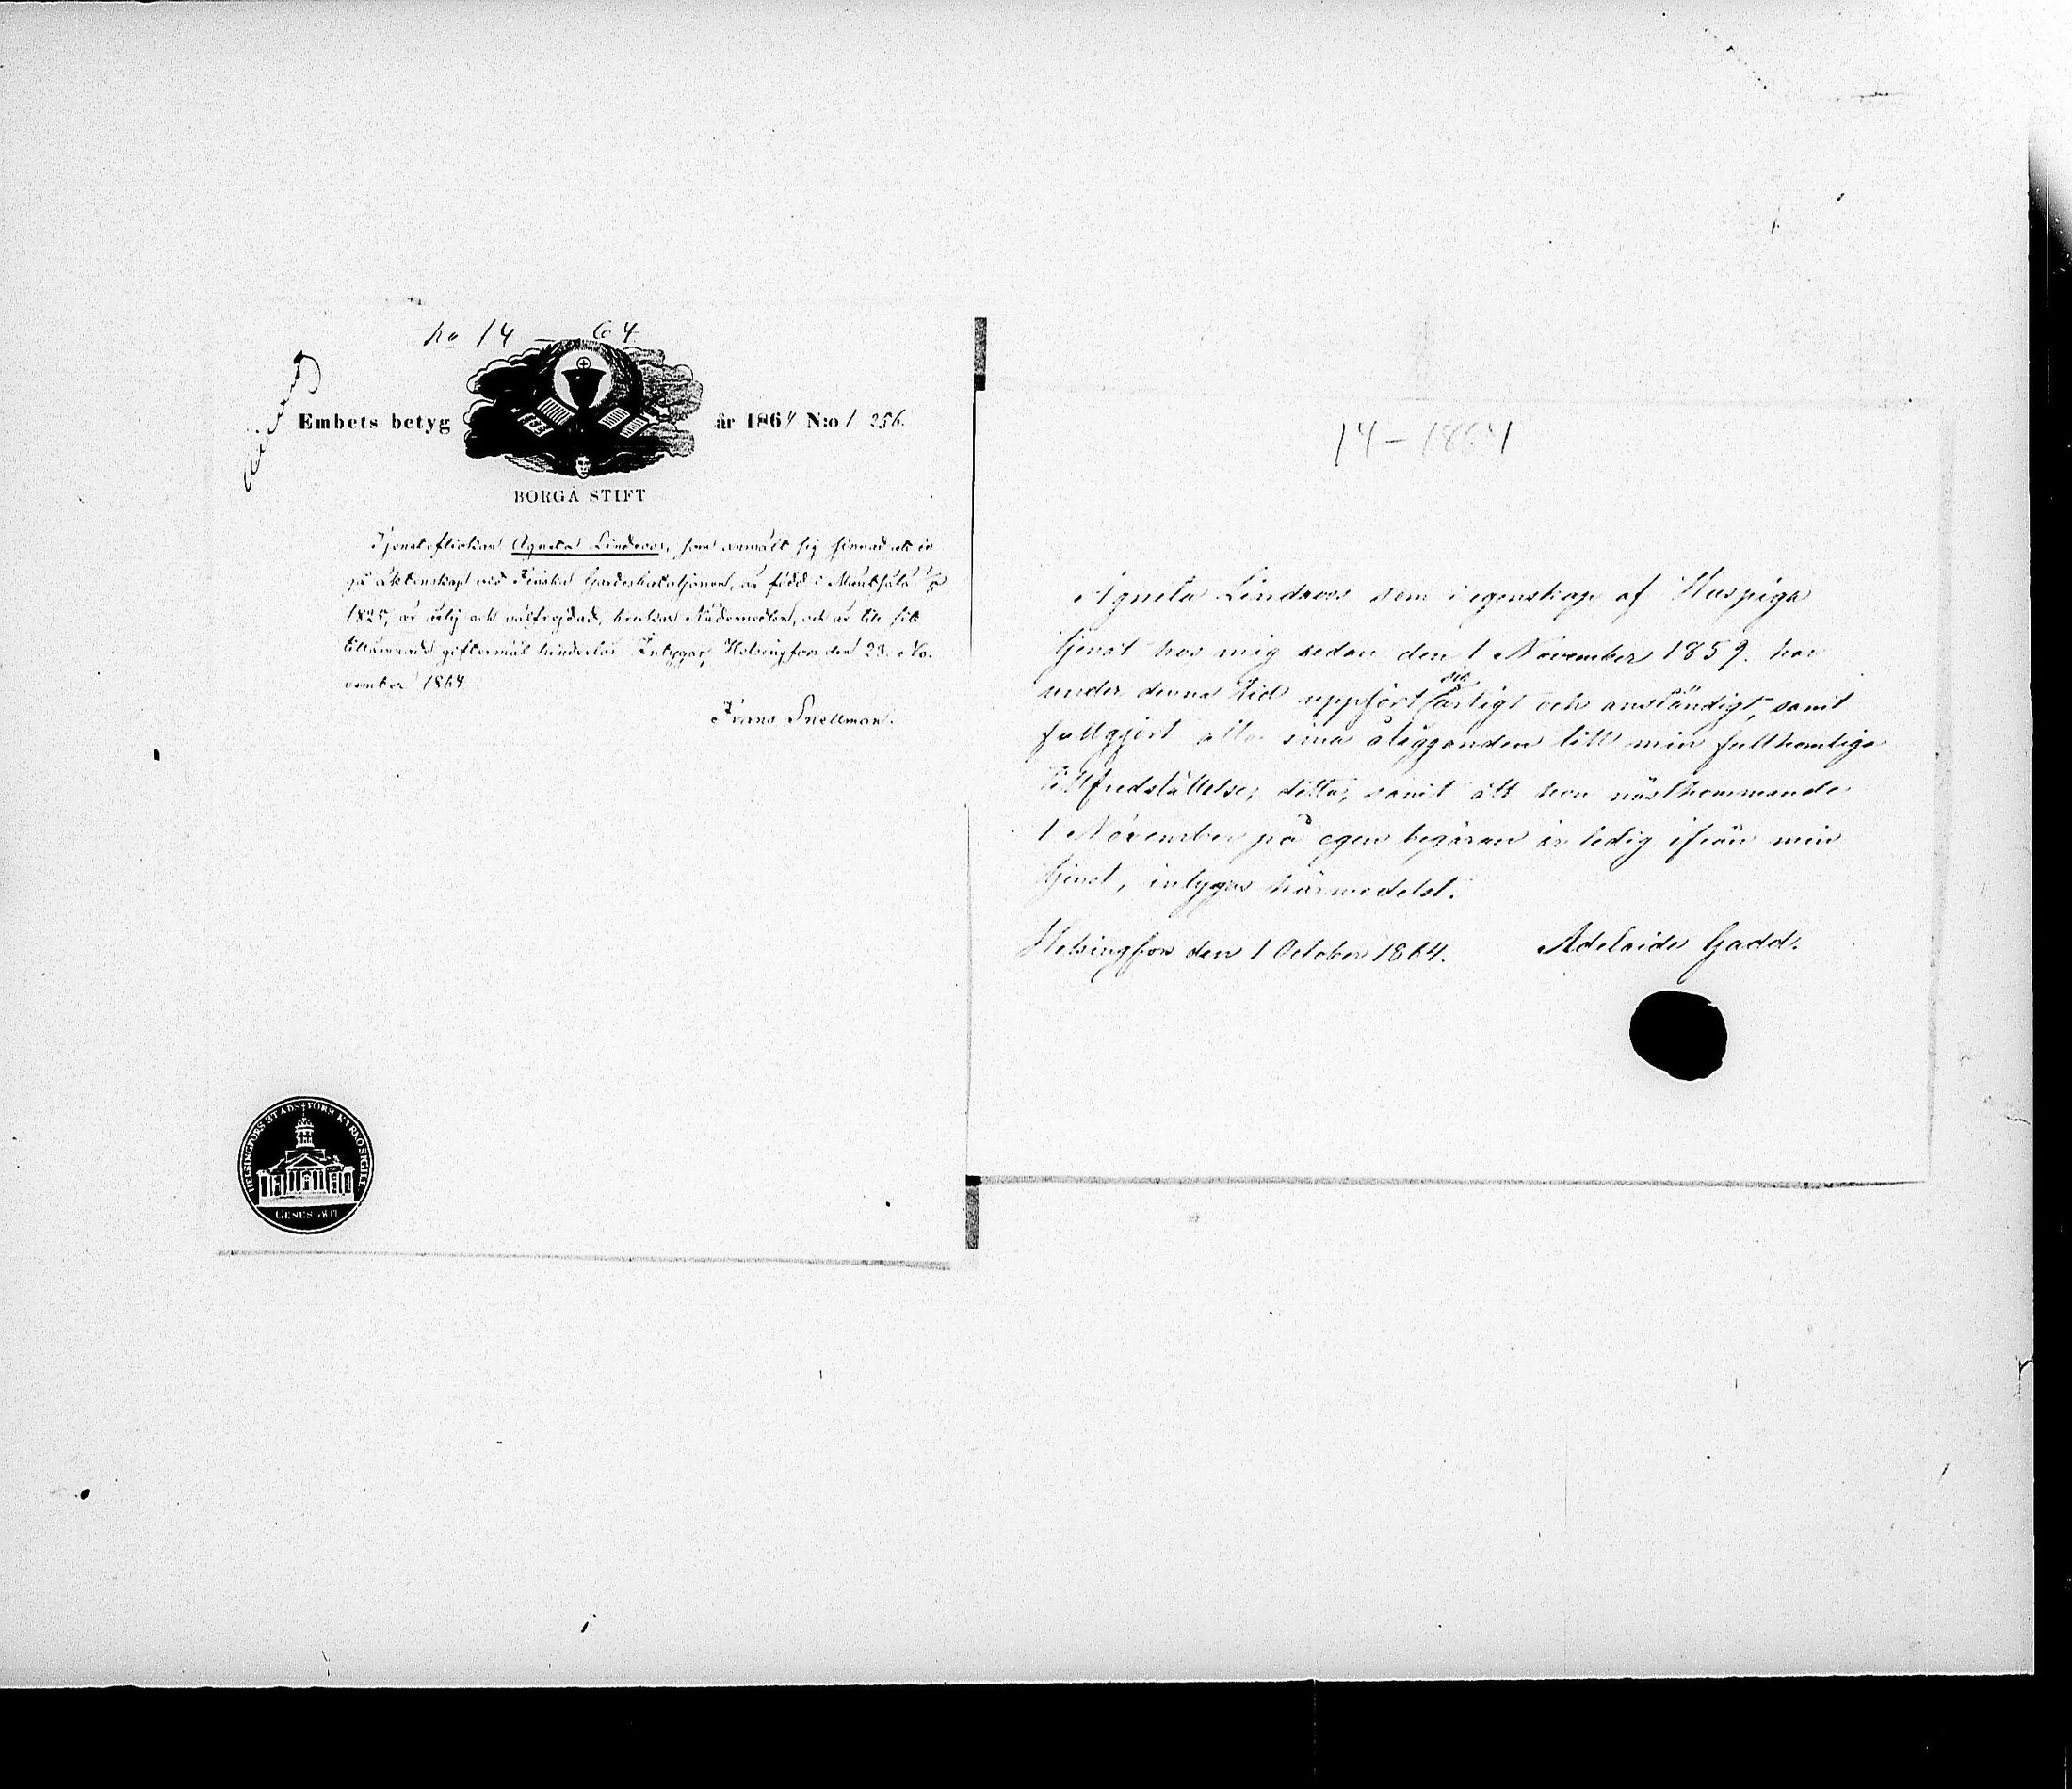 no 14 — 64
Embets betyg år 1864 N:o 1256.
BORGÅ STIFT
Tjensteflickan Agneta Lindroos, som anmält sig sinnad att in
gå äktenskap vid Finska Gardesbataljonen, är född i Mäntsälä 1/5
1825, är ärlig och välfrejdad, brukar Nådemedlen, och är till sitt
tillämnade giftermål hinderlös. Intygar, Helsingfors den 23. No-
vember 1864.
Frans Snellman.
HELSINGFORS STADS FÖRS. KYRKOSIGILL
14 – 1864
Agneta Lindroos som i egenskap af Huspiga
tjenst hos mig sedan den 1 November 1859. har
under denna tid uppfört sig ärligt och anständigt, samt
fullgjort alla sina åligganden till min fullkomliga
tillfredställelse; detta, samt att hon nästkommande
1 November på egen begäran är ledig ifrån min
tjenst, intygas härmedelst.
Helsingfors den 1 October 1864. Adelaide Gadd.